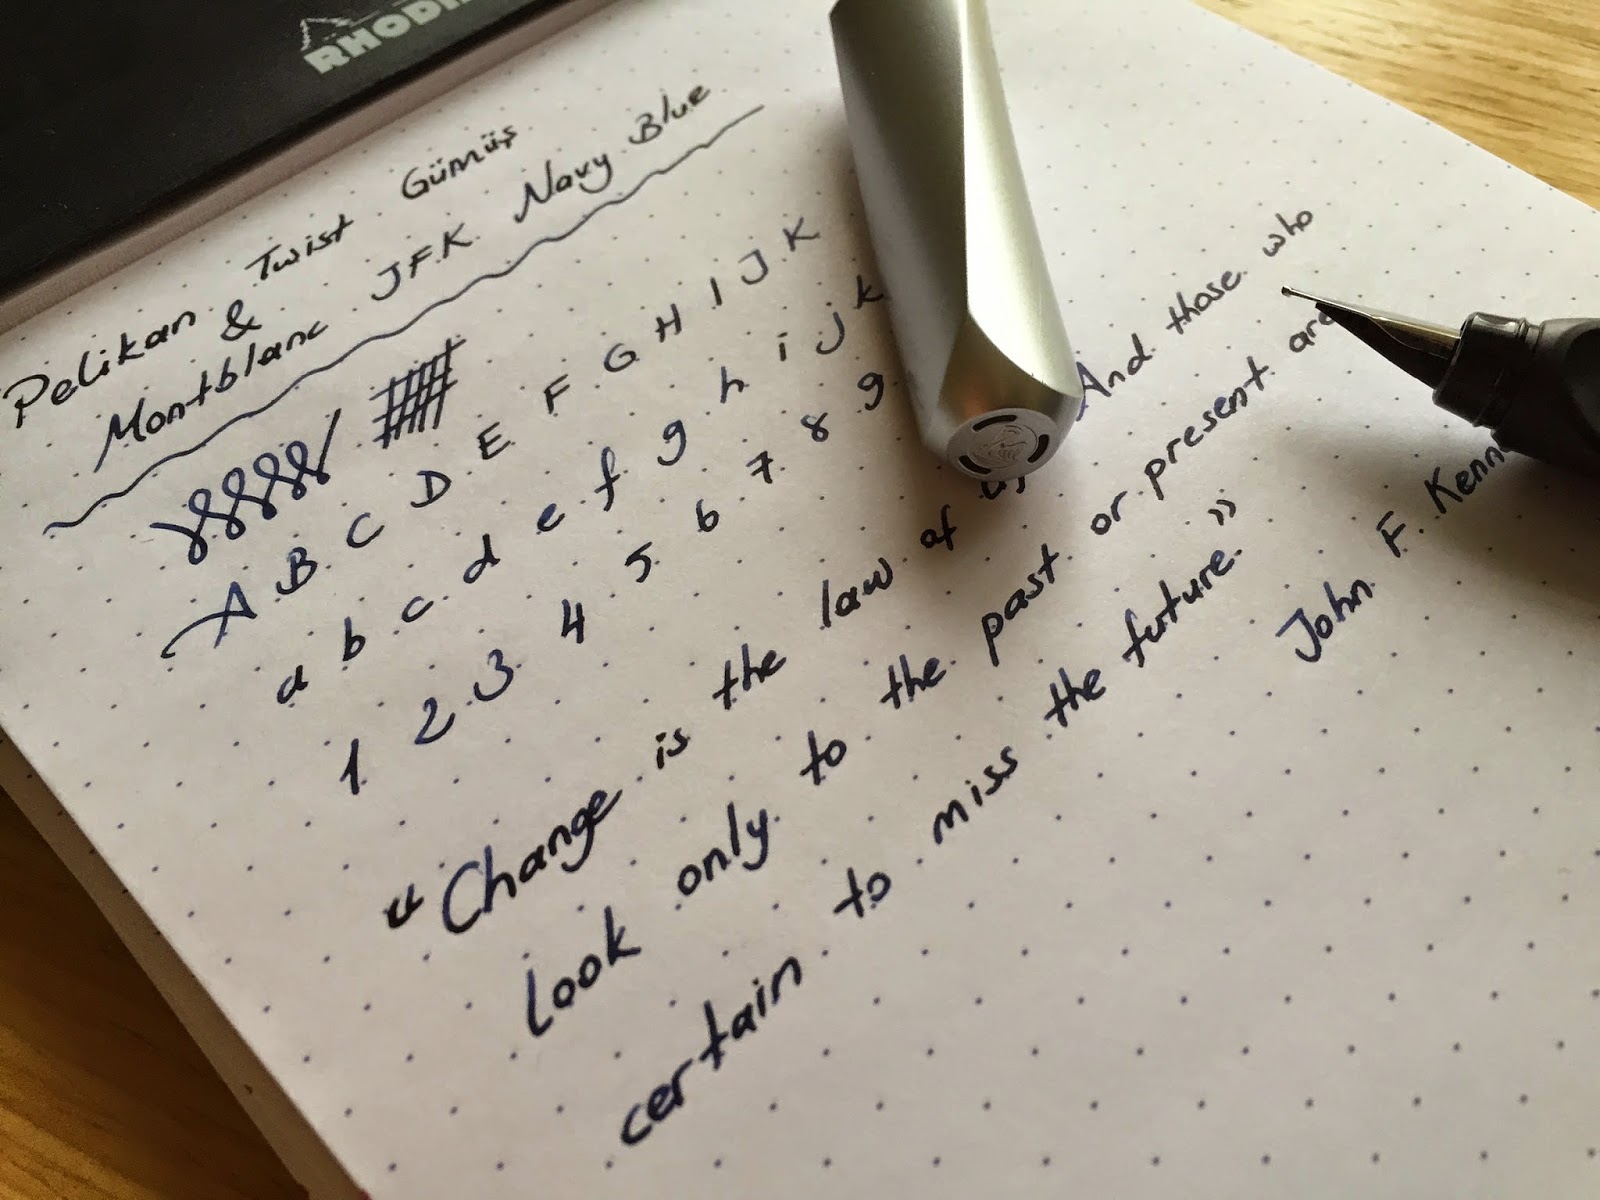 RHODI
Pelikan Twist Gümüş
&
Montblanc JFK Navy Blue
A B C D E F G H I J K
a b c d e f g h i j k
1 2 3 4 5 6 7 8 9
“Change is the law of And those who
look only to the past or present are
certain to miss the future.”
John F. Kenn